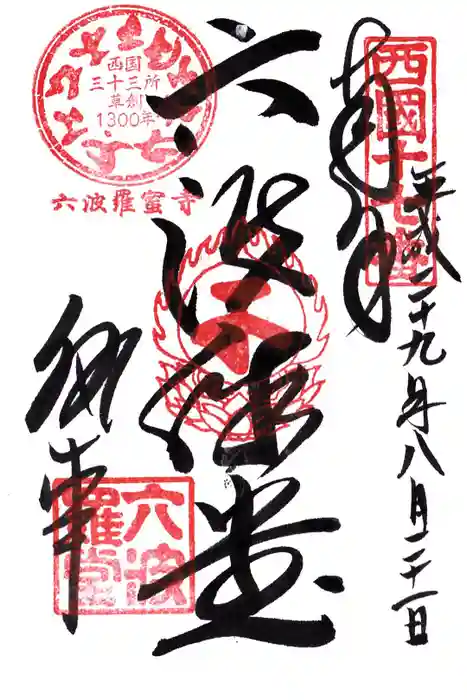 奉拝
西國十七番
平成二十九年八月二十一日
六波羅堂
西国
三十三所
草創
1300年
六波羅蜜寺
執事
六波
羅堂